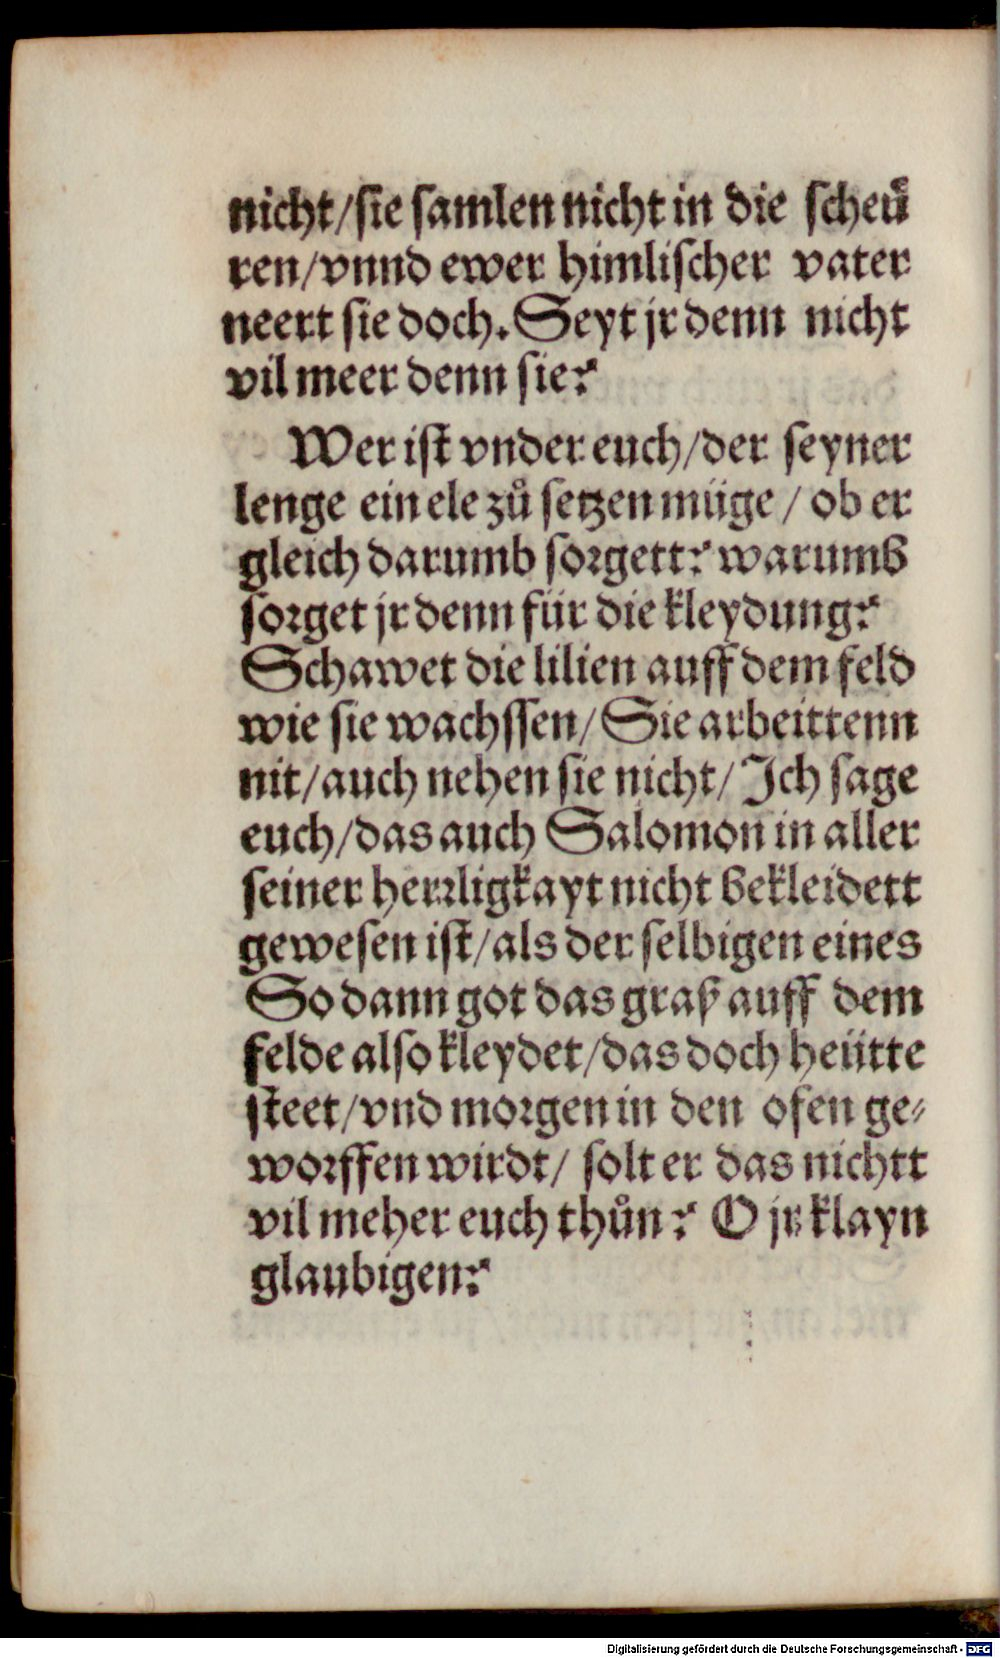 nicht/sie samlen nicht in die scheuͤ
ren/vnnd ewer himlischer vater
neert sie doch. Seyt jr denn nicht
vil meer denn sie?
Wer ist vnder euch/der seyner
lenge ein ele zuͦ setzen müge / ob er
gleich darumb sorgett? warumb
sorget jr denn für die kleydung?
Schawet die lilien auff dem feld
wie sie wachssen/ Sie arbeittenn
nit/auch nehen sie nicht/ Ich sage
euch/das auch Salomon in aller
seiner herrligkayt nicht bekleidett
gewesen ist/als der selbigen eines
So dann got das graß auff dem
felde also kleydet/das doch heütte
steet/vnd morgen in den ofen ge-
worffen wirdt/ solt er das nichtt
vil meher euch thuͦn? O jr klayn
glaubigen?
Digitalisierung gefördert durch die Deutsche Forschungsgemeinschaft - DFG